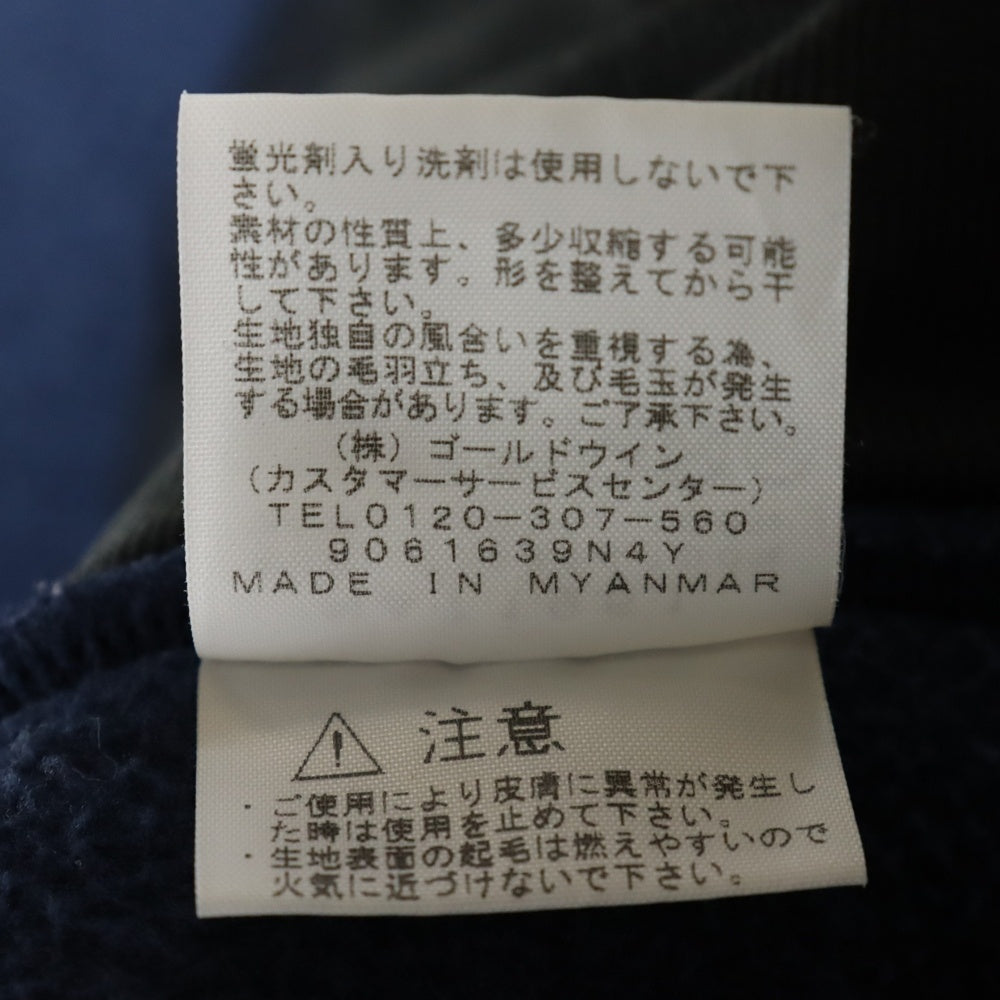 蛍光剤入り洗剤は使用しないで下
さい。
素材の性質上、多少収縮する可能
性があります。形を整えてから干
して下さい。
生地独自の風合いを重視する為、
生地の毛羽立ち、及び毛玉が発生
する場合があります。ご了承下さい。
(株)ゴールドウイン
(カスタマーサービスセンター)
TEL0120-307-560
9061639N4Y
MADE IN MYANMAR
注意
・ご使用により皮膚に異常が発生し
た時は使用を止めて下さい。
・生地表面の起毛は燃えやすいので
火気に近づけないで下さい。